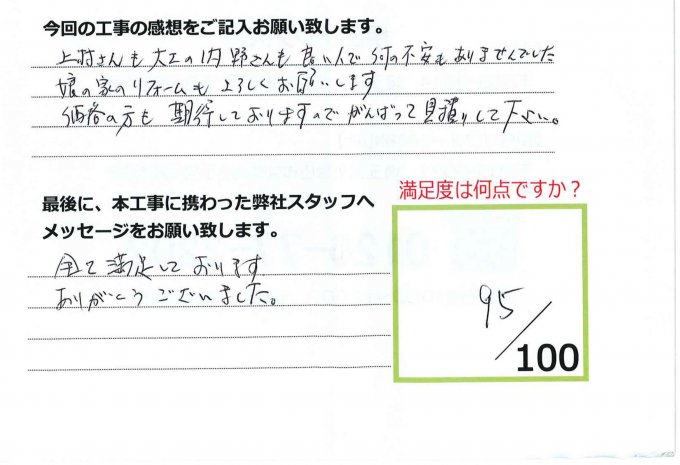 今回の工事の感想をご記入お願い致します。
上村さんも大工の内野さんも良い人で何の不安もありませんでした
娘の家のリフォームもよろしくお願いします
価格の方も期待しておりますのでがんばって見積りして下さい。
最後に、本工事に携わった弊社スタッフへ
メッセージをお願い致します。
全て満足しております
ありがとうございました。
満足度は何点ですか？
95/100